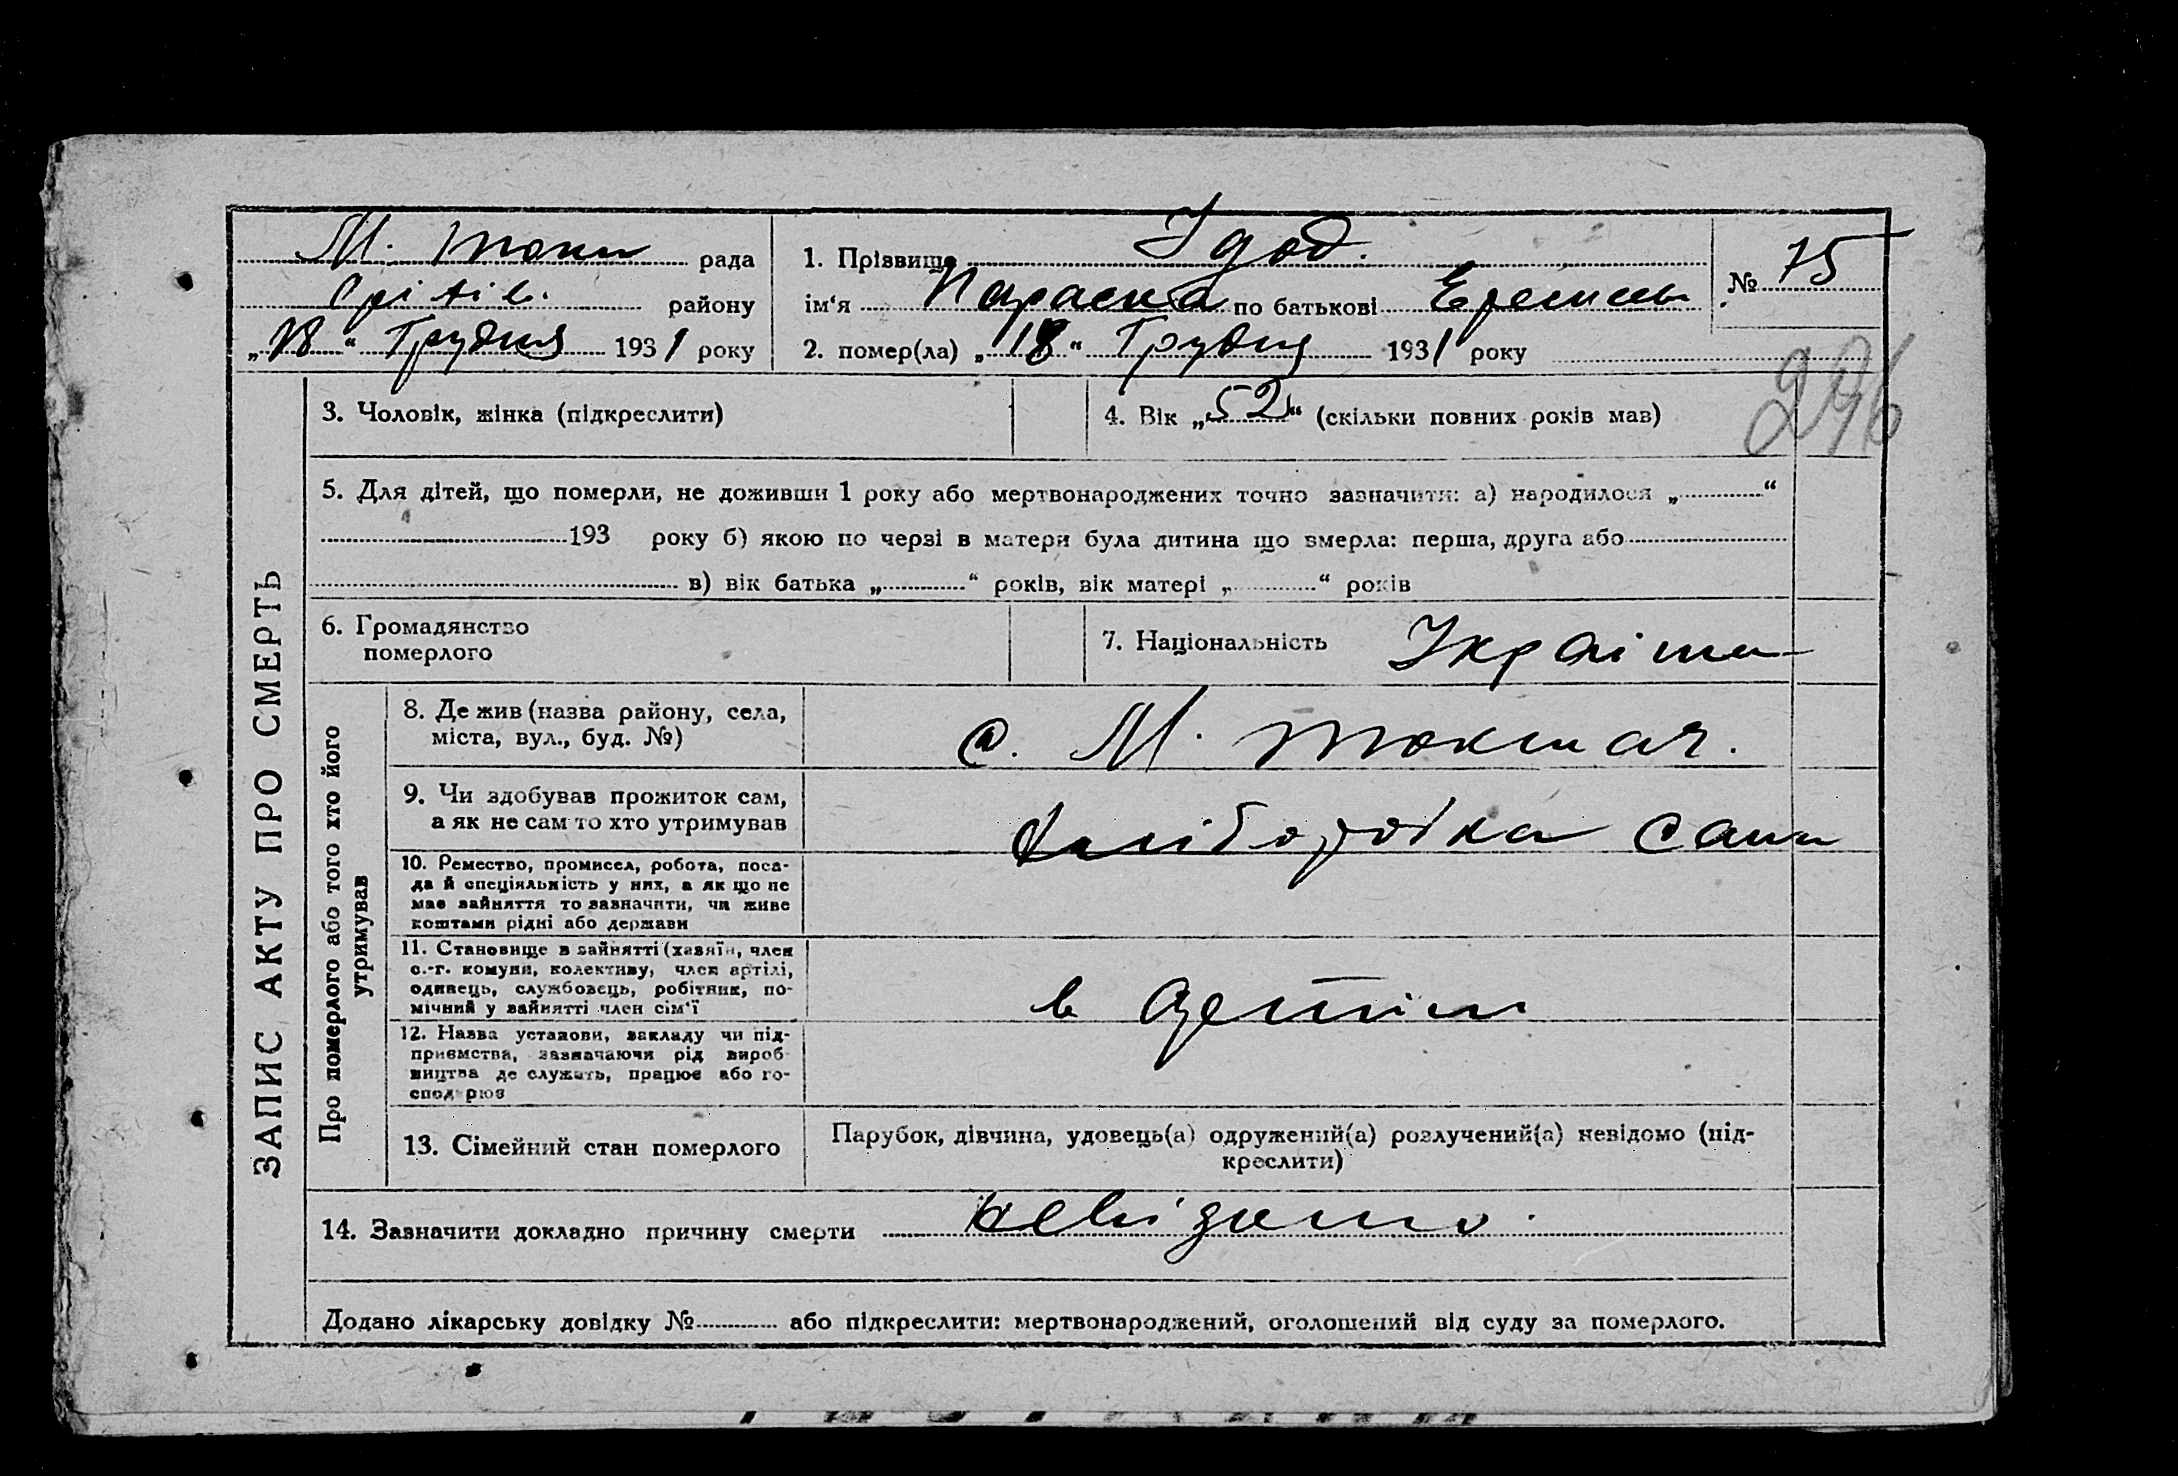 М. Токм рада
Оріхів. району
„18“ Грудня 1931 року
1. Прізвище Удод.
ім‘я Параска по батькові
2. помер(ла) „18“ Грудня 1931 року
№ 75
296
ЗАПИС АКТУ ПРО СМЕРТЬ
3. Чоловік, жінка (підкреслити)
4. Вік „52“ (скільки повних років мав)
5. Для дітей, що померли, не доживши 1 року або мертвонароджених точно зазначити: а) народилося „ “
193 року б) якою по черзі в матери була дитина що вмерла: перша, друга або
в) вік батька „ “ років, вік матері „ “ років
6. Громадянство
померлого
7. Національність Україн
Про померлого або того хто його
утримував
8. Де жив (назва району, села,
міста, вул., буд. №)
с. М. Токмач.
9. Чи здобував прожиток сам,
а як не сам то хто утримував
сама
10. Ремество, промисел, робота, поса-
да й спеціяльність у них, а як що не
має зайняття то зазначити, чи живе
коштами рідні або держави
11. Становище в зайнятті (хазяїн, член
с.-г. комуни, колективу, член артілі,
одинець, службовець, робітник, по-
мічний у зайнятті член сім‘ї
в Артіли
12. Назва установи, закладу чи під-
приємства, зазначаючи рід вироб-
ництва де служать, працює або го-
сподарює
13. Сімейний стан померлого
Парубок, дівчина, удовець(а) одружений(а) розлучений(а) невідомо (під-
креслити)
14. Зазначити докладно причину смерти невідомо.
Додано лікарську довідку № або підкреслити: мертвонароджений, оголошений від суду за померлого.